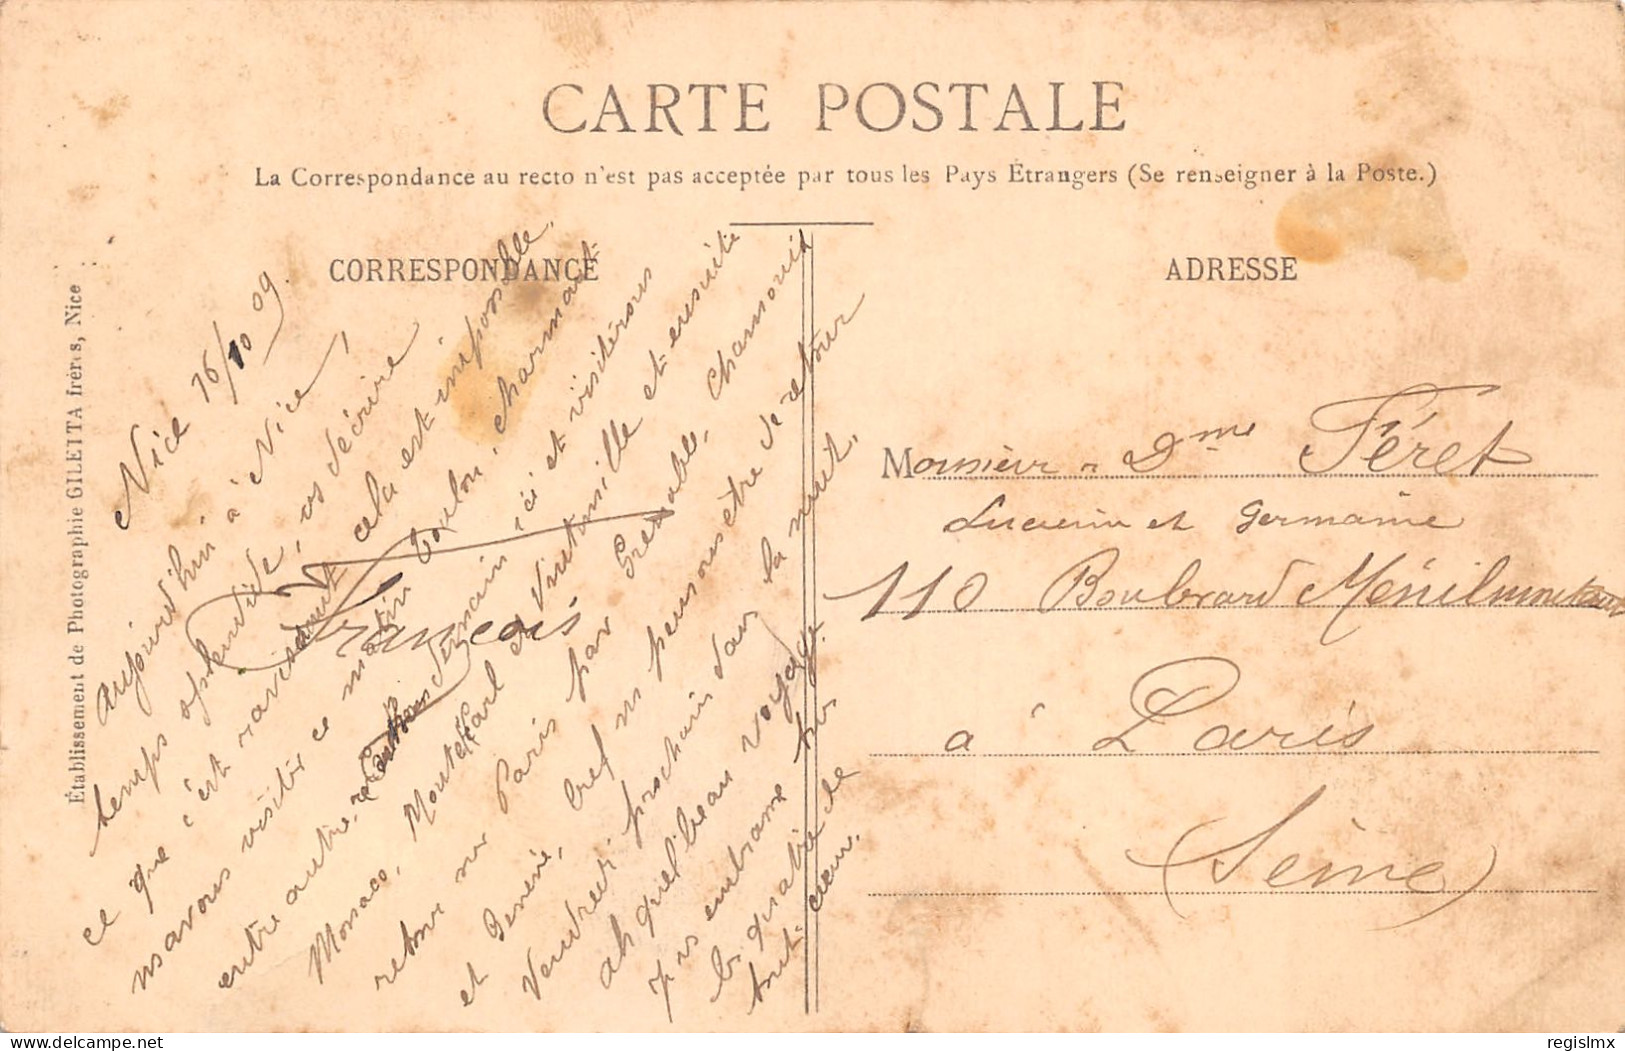 CARTE POSTALE
La Correspondance au recto n'est pas acceptée par tous les Pays Étrangers (Se renseigner à la Poste.)
CORRESPONDANCE
ADRESSE
Établissement de Photographie GILETTA frères, Nice
Nice 16/10 09
Aujourd'hui à Nice,
temps splendide, vs décrire
ce que c'est ravissant cela est impossible.
ns avons visité ce matin Toulon, charmant
entre autre. demain ici et visiterons
Monaco, Monte Carl et Vintimille et ensuite
retour sur Paris par Grenoble, Chamonix
et Genève, bref ns pensons être de retour
Vendredi prochain dans la nuit.
ah quel beau voyage
Ns vs embrassons ts
les quatre de
tout cœur.
François
Monsieur & Dme Féret
Lucienne et Germaine
110 Boulevard Ménilmontant
à Paris
(Seine)
regislmx